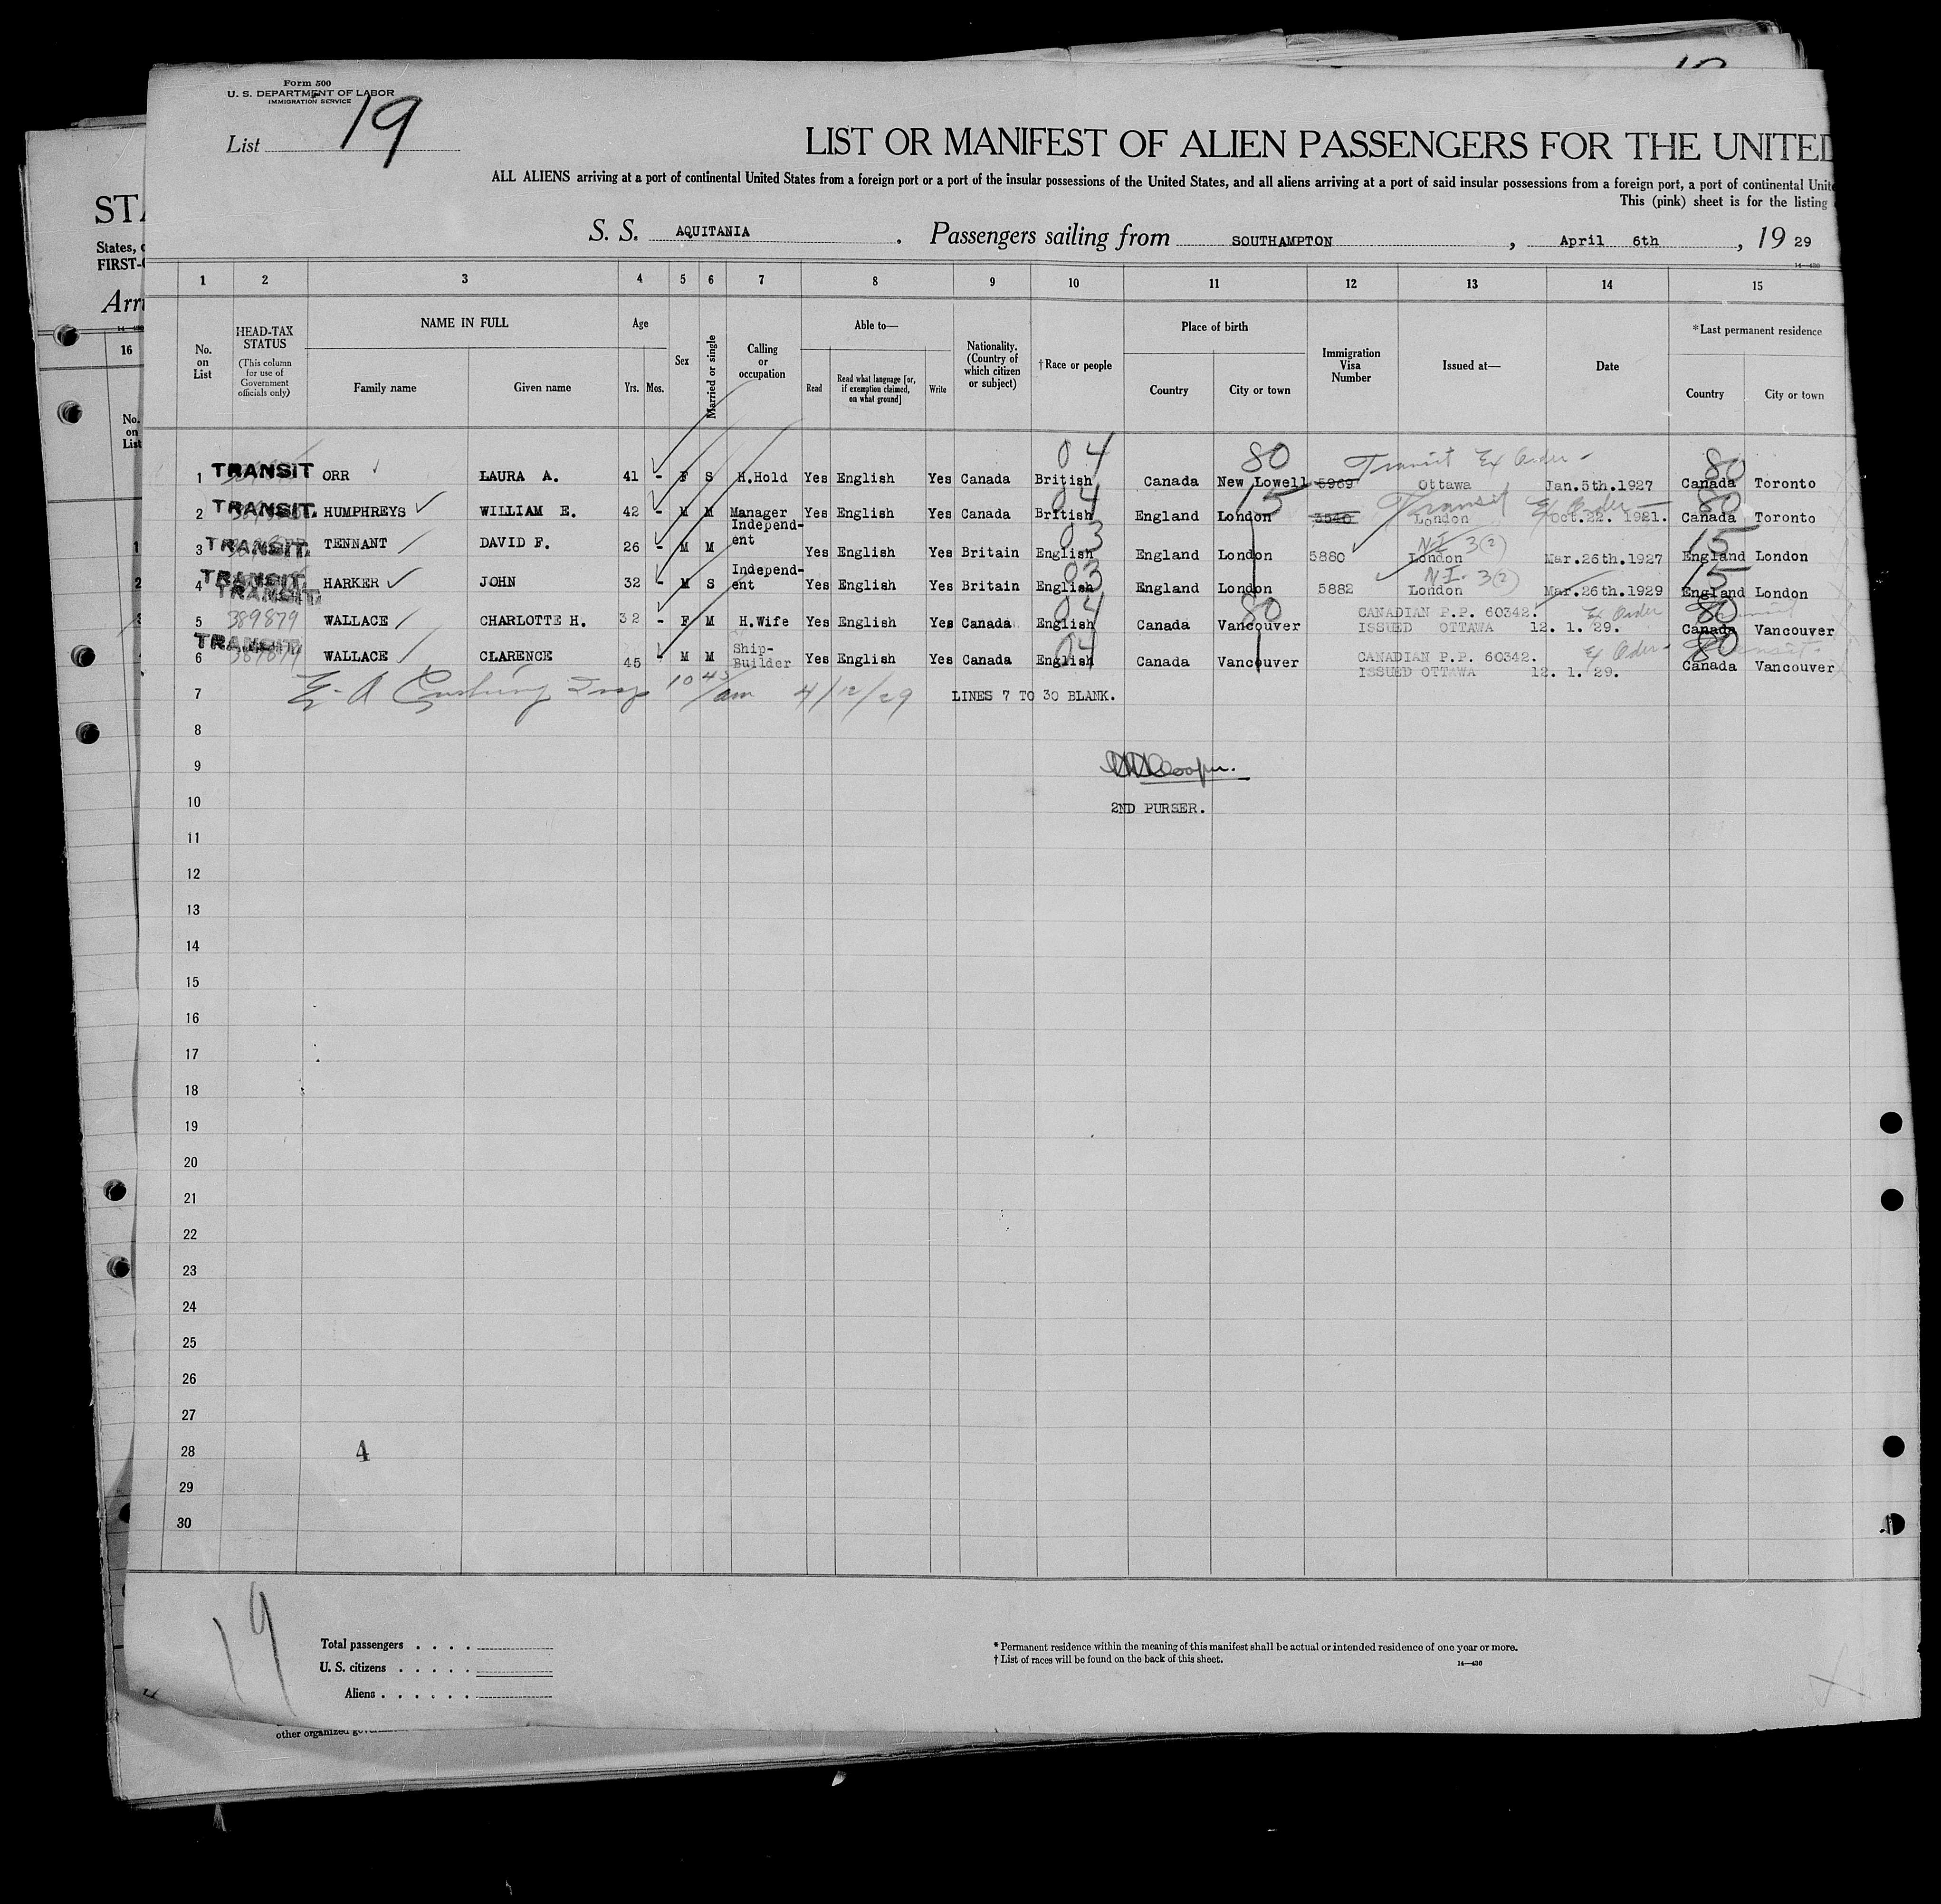 Form 500
U. S. DEPARTMENT OF LABOR
IMMIGRATION SERVICE
List 19
LIST OR MANIFEST OF ALIEN PASSENGERS FOR THE UNITED
ALL ALIENS arriving at a port of continental United States from a foreign port or a port of the insular possessions of the United States, and all aliens arriving at a port of said insular possessions from a foreign port, a port of continental Unit
This (pink) sheet is for the listing
S. S. AQUITANIA. Passengers sailing from SOUTHAMPTON, April 6th, 19 29
14—430
STA
States, o
FIRST-C
Arri
16
No. on List
1 2 3 4 5 6 7 8 9 10 11 12 13 14 15
No. on List
HEAD-TAX STATUS (This column for use of Government officials only)
NAME IN FULL
Family name
Given name
Age
Yrs. Mos.
Sex
Married or single
Calling or occupation
Able to—
Read
Read what language [or, if exemption claimed, on what ground]
Write
Nationality. (Country of which citizen or subject)
†Race or people
Place of birth
Country
City or town
Immigration Visa Number
Issued at—
Date
*Last permanent residence
Country
City or town
04 80 Transit Ex Order - 80
1 TRANSIT ORR LAURA A. 41 - F S H.Hold Yes English Yes Canada British Canada New Lowell 5969 Ottawa Jan.5th.1927 Canada Toronto
04 15 Transit Ex Order 80
2 TRANSIT. HUMPHREYS WILLIAM E. 42 - M M Manager Yes English Yes Canada British England London 3540 London Oct.22. 1921. Canada Toronto
03 N.I. 3(2) 15
3 TRANSIT. TENNANT DAVID F. 26 - M M Independ-ent Yes English Yes Britain English England London 5880 London Mar.26th.1927 England London
03 N.I. 3(2) 15
4 TRANSIT. HARKER JOHN 32 - M S Independ-ent Yes English Yes Britain English England London 5882 London Mar.26th.1929 England London
TRANSIT.
04 80 Ex Order Transit 80
5 389879 WALLACE CHARLOTTE H. 32 - F M H.Wife Yes English Yes Canada English Canada Vancouver CANADIAN P.P. 60342. ISSUED OTTAWA 12. 1. 29. Canada Vancouver
TRANSIT.
04 Ex Order - Transit - 80
6 389879 WALLACE CLARENCE 45 - M M Ship-Builder Yes English Yes Canada English Canada Vancouver CANADIAN P.P. 60342. ISSUED OTTAWA 12. 1. 29. Canada Vancouver
7 E. A Cushing Insp 10 45/am 4/12/29 LINES 7 TO 30 BLANK.
8
9 Cooper.
10 2ND PURSER.
11
12
13
14
15
16
17
18
19
20
21
22
23
24
25
26
27
28 4
29
30
19
Total passengers
U. S. citizens
Aliens
* Permanent residence within the meaning of this manifest shall be actual or intended residence of one year or more.
† List of races will be found on the back of this sheet.
14—430
other organized